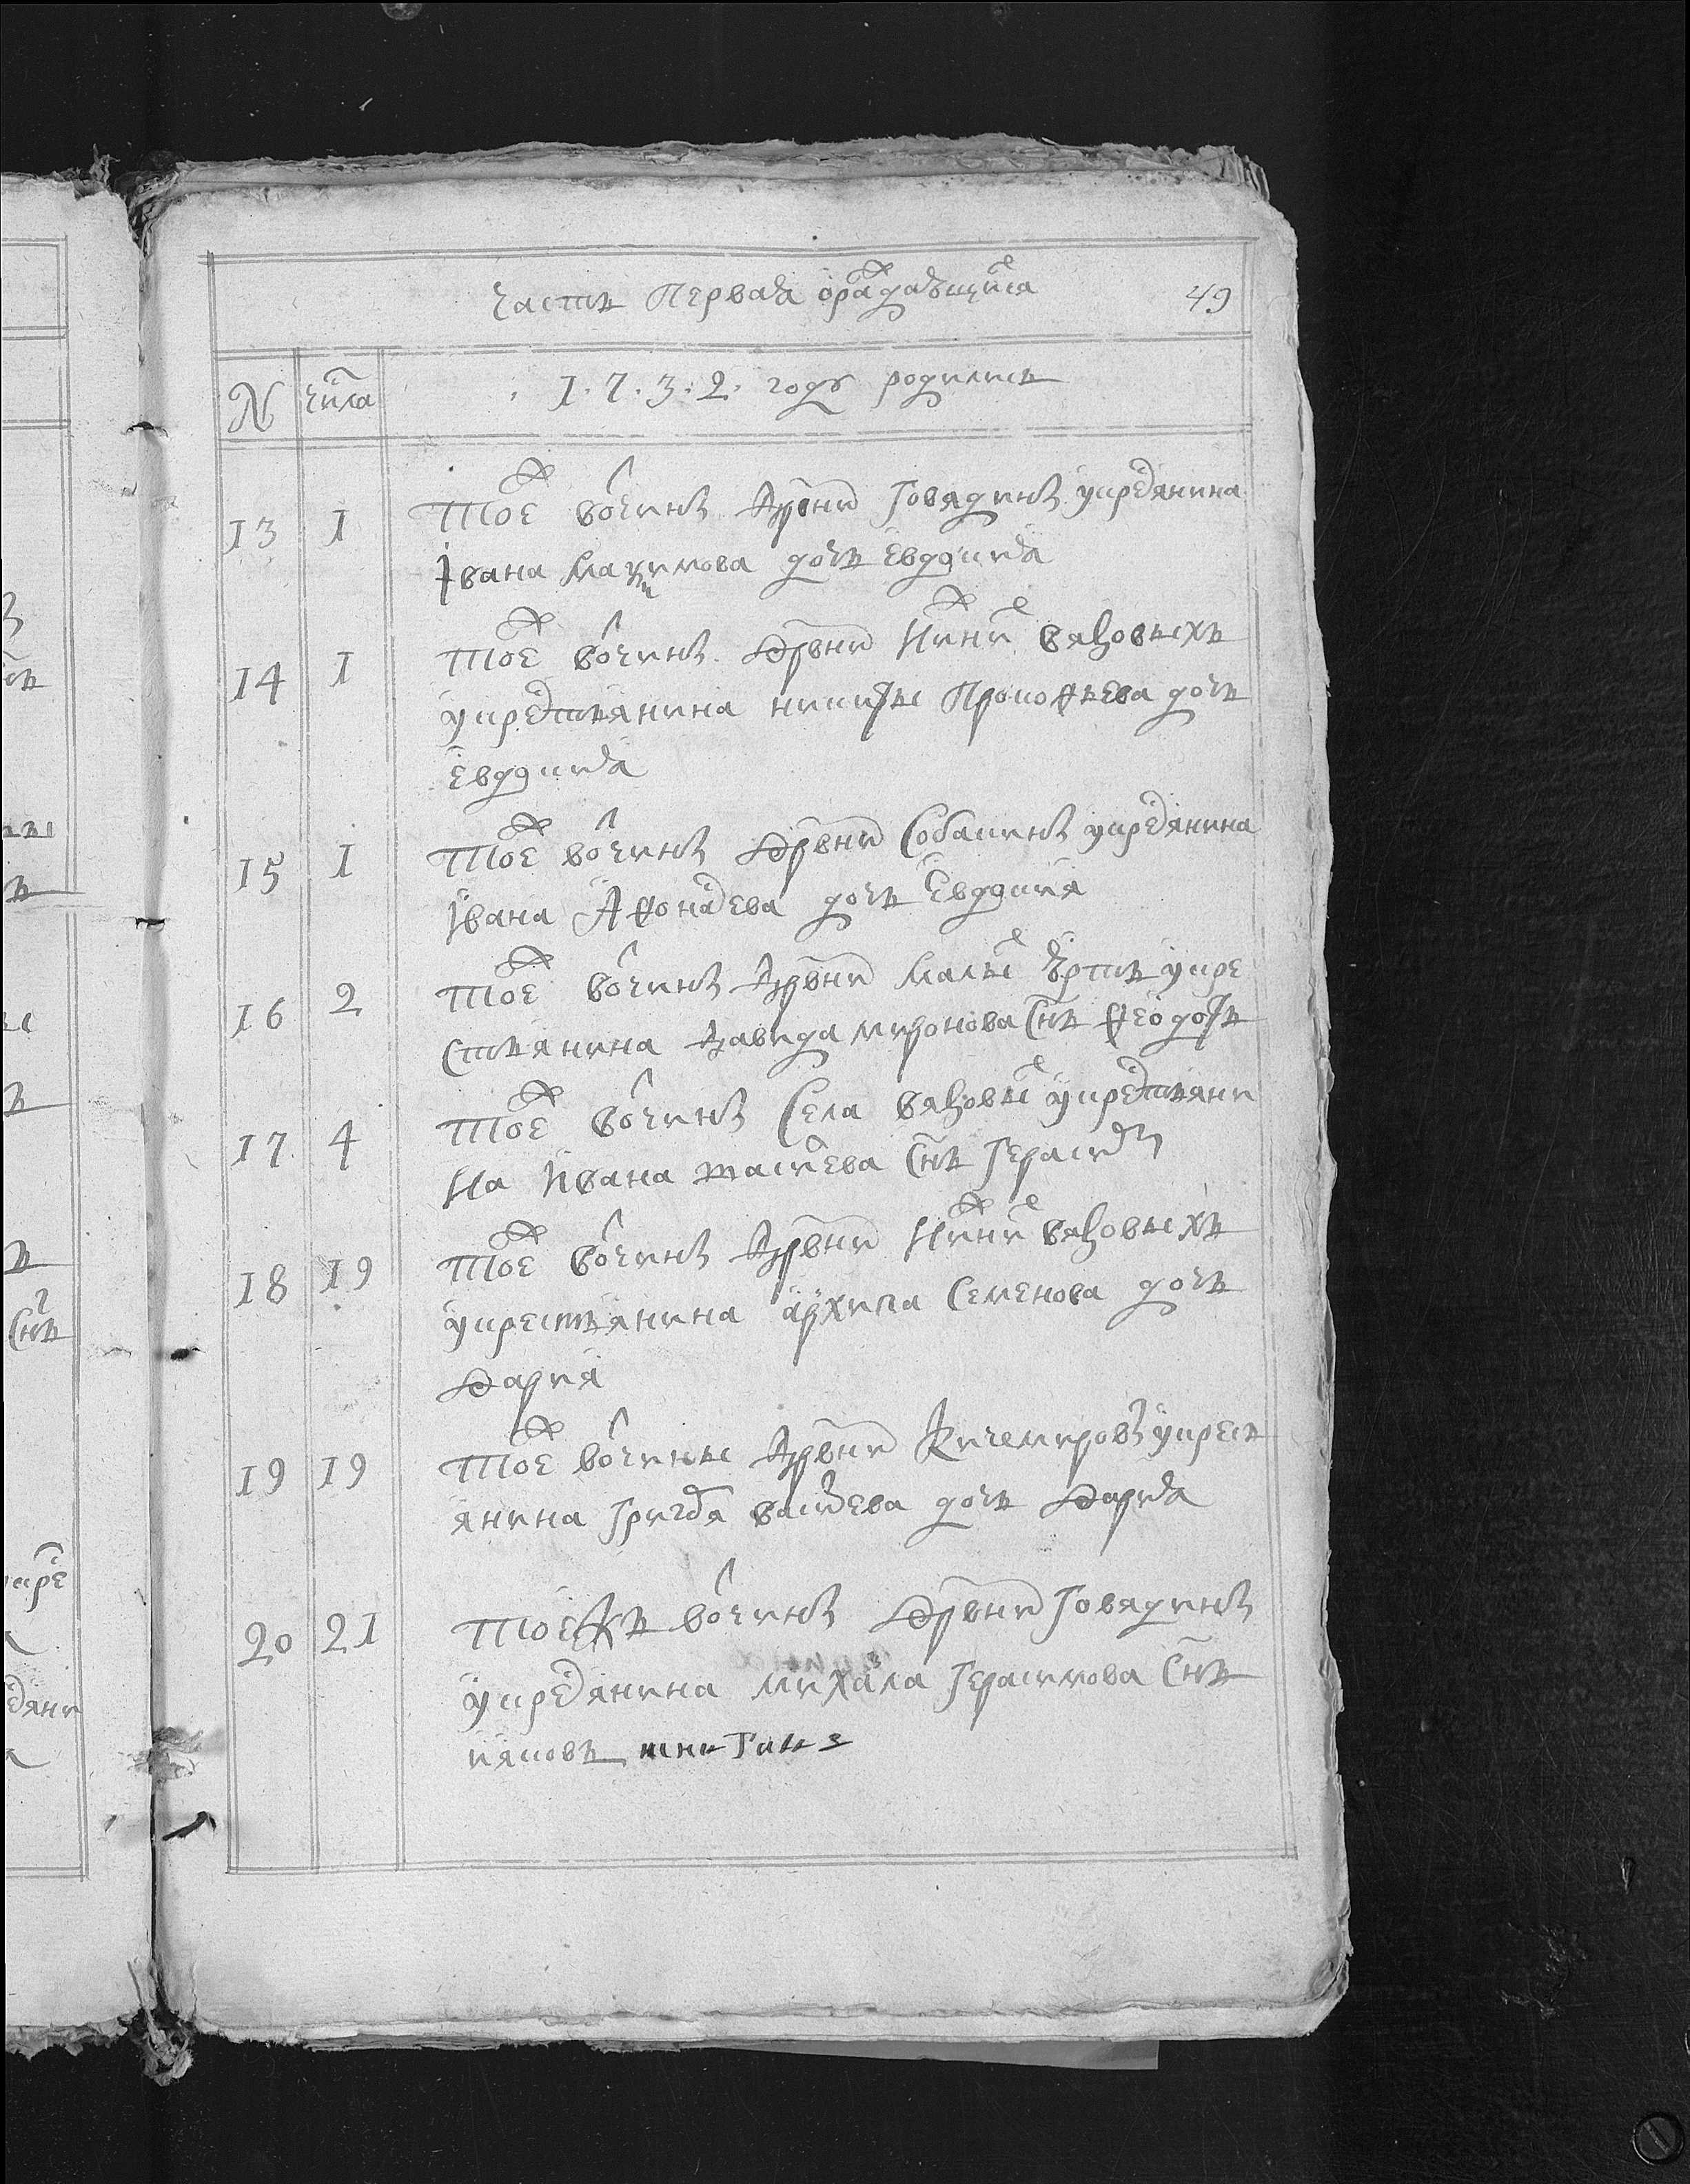 Часть Первая о раждающихся 49
N числа 1.7.3.2. году родились
13 1 Тоеж вочины дрвни Говядины укресянина
Ивана Максимова дочь Евдокия
14 1 Тоеж вочины дрвни Вязовыхъ
укрестьянина никиты Прокофьева дочь
Евдокия
15 1 Тоеж вочины дрвни Собакины укресянина
Ивана Афонасева дочь Евдокия
16 2 Тоеж вочины дрвни Малых укре
стьянина давида миронова снъ Феодотъ
17 4 Тоеж вочины Села вязовых укрестьяни
на Ивана снъ Герасим
18 19 Тоеж вочины дрвни вязовыхъ
укрестьянина архипа Семенова дочь
Дария
19 19 Тоеж вочины дрвни Кичемировы укресь
янина Григоря василева дочь Дария
20 21 Тоежъ вочины дрвни Говядины
укресянина михаила Герасимова снъ
ияковъ